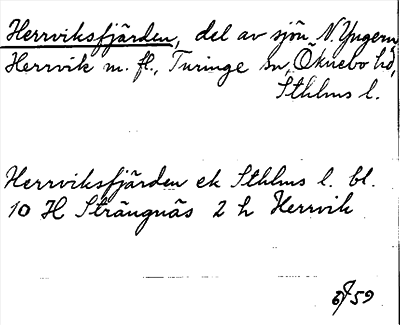 Herrviksfjärden, del av sjön N. Yngern,
Herrvik m. fl., Turinge sn, Öknebo hd,
Sthlms l.
Herrviksfjärden ek Sthlms l. bl.
10 H Strängnäs 2 h Herrvik